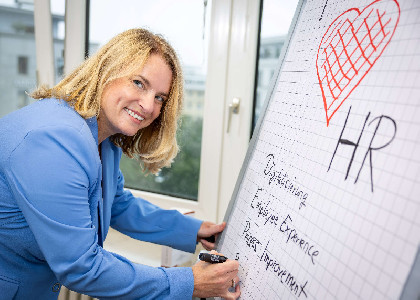 HR
Digitalisierung
Employee Experience
Process Improvement